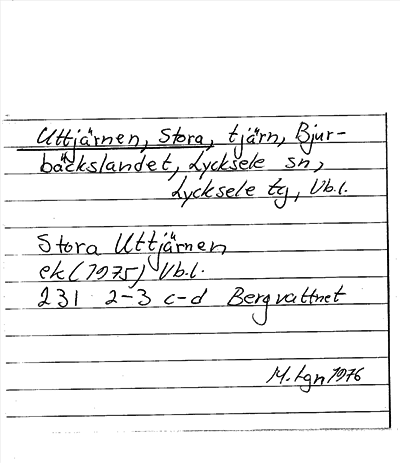 Uttjärnen, Stora, tjärn, Bjur-
bäckslandet, Lycksele sn,
Lycksele tg, Vb.l.
Stora Uttjärnen
ek (1975) Vb.l.
231 2-3 c-d Bergvattnet
1976